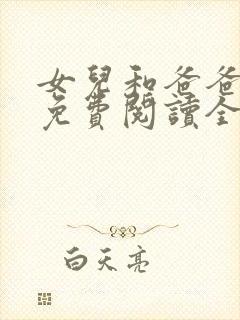 女兒和爸爸
免費閱讀全
白天亮